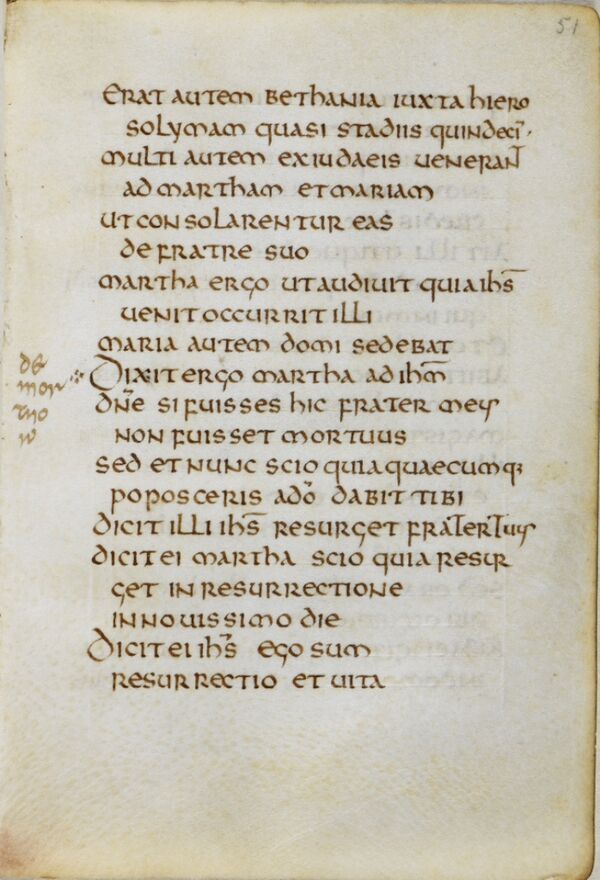 51
erat autem bethania iuxta hiero
solymam quasi stadiis quindeci·
multi autem ex iudaeis ueneran̄
ad martham et mariam
ut consolarentur eas
de fratre suo
martha ergo ut audiuit quia ihs̄
uenit occurrit illi
maria autem domi sedebat
Dixit ergo martha ad ihm̄
dn̄e si fuisses hic frater meus
non fuisset mortuus
sed et nunc scio quia quaecumq;
poposceris a dō dabit tibi
dicit illi ihs̄ resurget frater tuus
dicit ei martha scio quia resur
get in resurrectione
in nouissimo die
Dicit ei ihs̄ ego sum
resurrectio et uita
de
mor
tuo